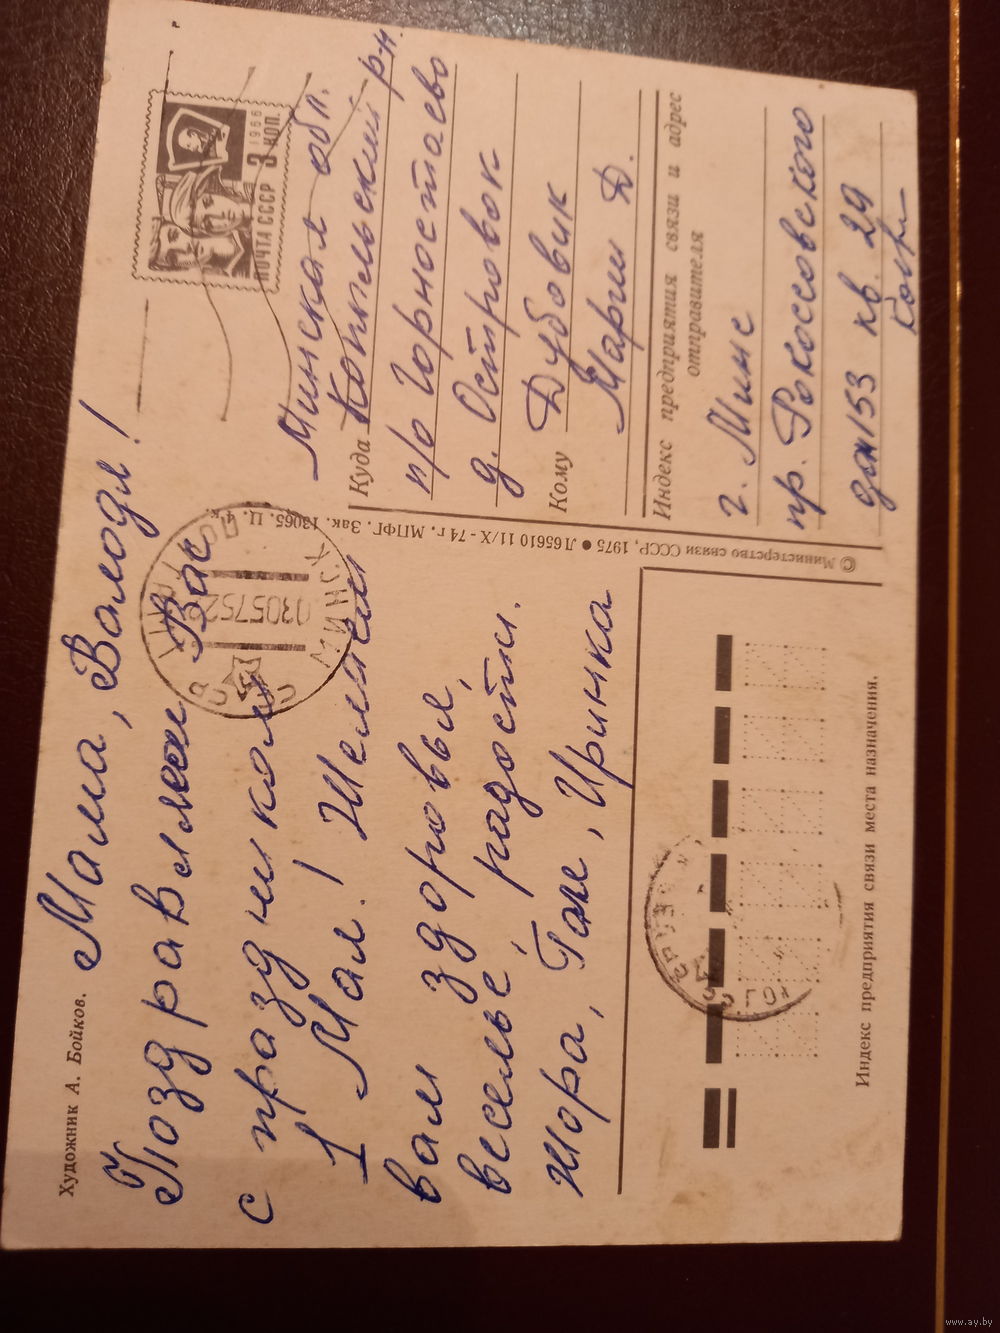 Художник А. Бойков.
Мама, Валодя!
Поздравляем Вас
с праздником
1 Мая! Желаем
вам здоровья,
веселья, радости.
Жора, Галя, Иринка
ПОЧТА СССР 3 КОП.
1966
Минская обл.
Куда Копыльский р-н.
п/о Горностаево
д. Островок
Кому Дубовик
Марии Д.
Индекс предприятия связи и адрес
отправителя
г. Минс
пр. Рокоссовского
дом 153 кв. 29
© Министерство связи СССР, 1975 ● Л 65610 11/X - 74 г. МПФГ. Зак. 13065. Ц. 4 к.
МИНСК
030575
Индекс предприятия связи места назначения.
www.ay.by